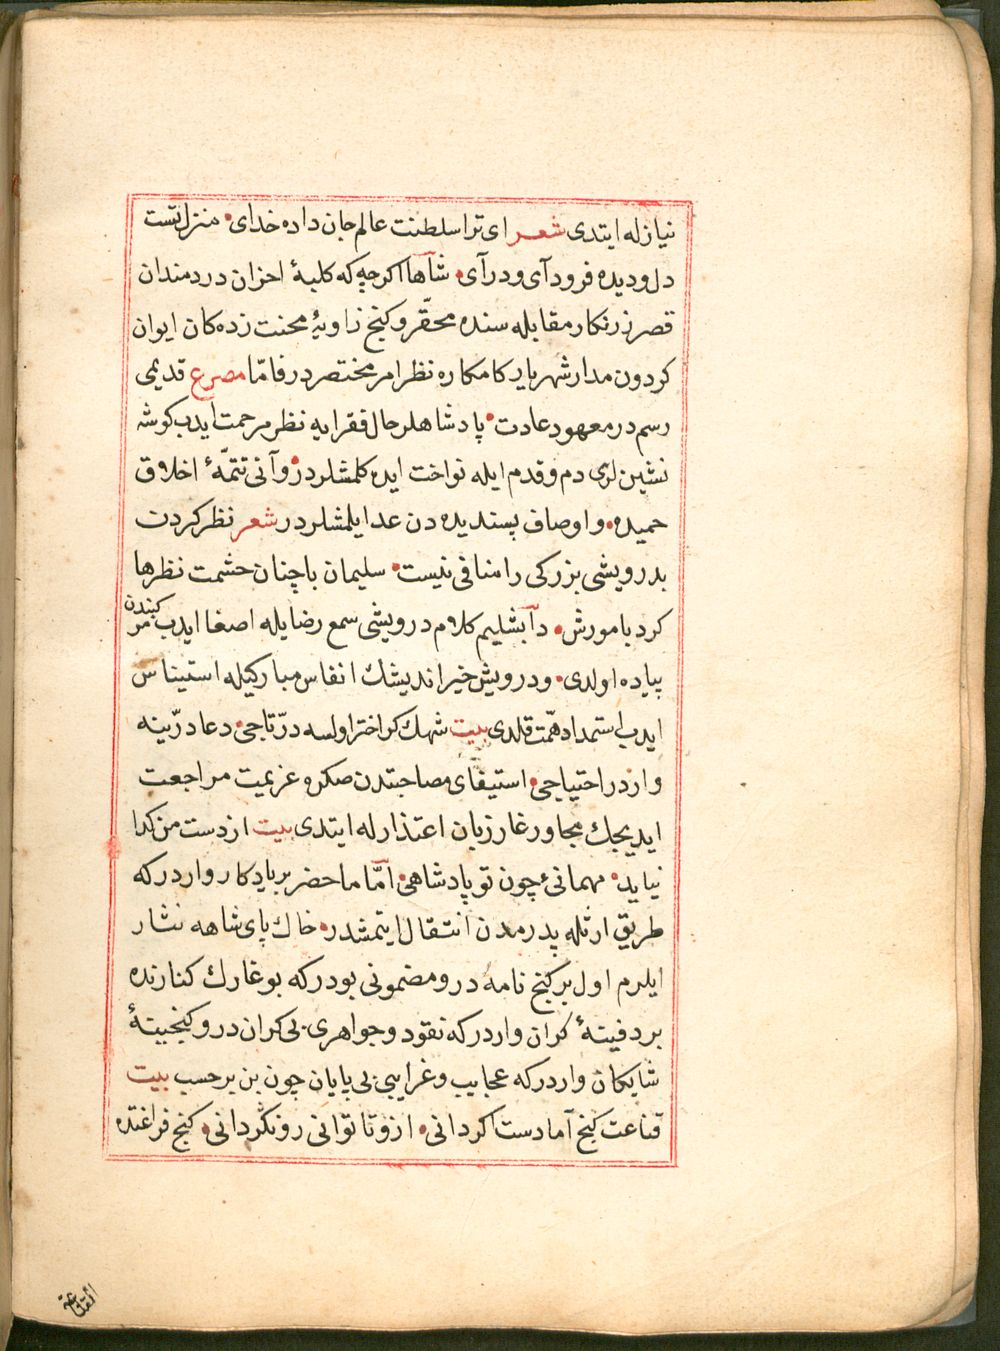 نیازله ایتدی شعر ای ترا سلطنت عالم جان داده خدای • منزل تست
دل و دیده فرود آی و درآی • شاها اکرچه که کلبهٔ احزان دردمندان
قصر زرنکار مقابله سنده محقّر و کنج زاویهٔ محنت زده کان ایوان
کردون مدار شهریار کامکاره نظر امر مختصر در فامّا مصرع قدیمی
رسم در معهود عادت • پادشاهلر حال فقرایه نظر مرحمت ایدب کوشه
نشین لری دم و قدم ایله نواخت ایده کلمشلردر • وآنی تتمّهٔ اخلاق
حمیده • و اوصاف پسندیده دن عد ایلمشلردر شعر نظر کردن
بدرویشی بزرکی را منافی نیست • سلیمان با چنان حشمت نظرها
کرد با مورش • دآبشلیم کلام درویشی سمع رضایله اصغا ایدب مرکبندن
پیاده اولدی • و درویش خیر اندیشك انفاس مبارکیله استیناس
ایدب استمداد همّت قلدی بیت شهك کر اختر اولسه درّ تاجی • دعا درّینه
واردر احتیاجی • استیفای مصاحبتدن صکره عزیمت مراجعت
ایدیجك مجاور غار زبان اعتذارله ایتدی بیت از دست من کدا
نیاید • مهمانیٔ چون تو پادشاهی • امّا ما حضر بر یادکار واردر که
طریق ارثله پدرمدن انتقال ایتمشدر • خاك پای شاهه نثار
ایلرم اول بر کنج نامه در و مضمونی بودر که بو غارك کنارنده
بر دفینهٔ کران واردر که نقود و جواهری بی کران در و کنجینهٔ
شایکان واردر که عجایب و غرایبی بی پایان چون بن بر حسب بیت
قناعت کنج آمادست اکر دانی • ازو تا توانی رو نکردانی • کنج فراغتده
القناعة